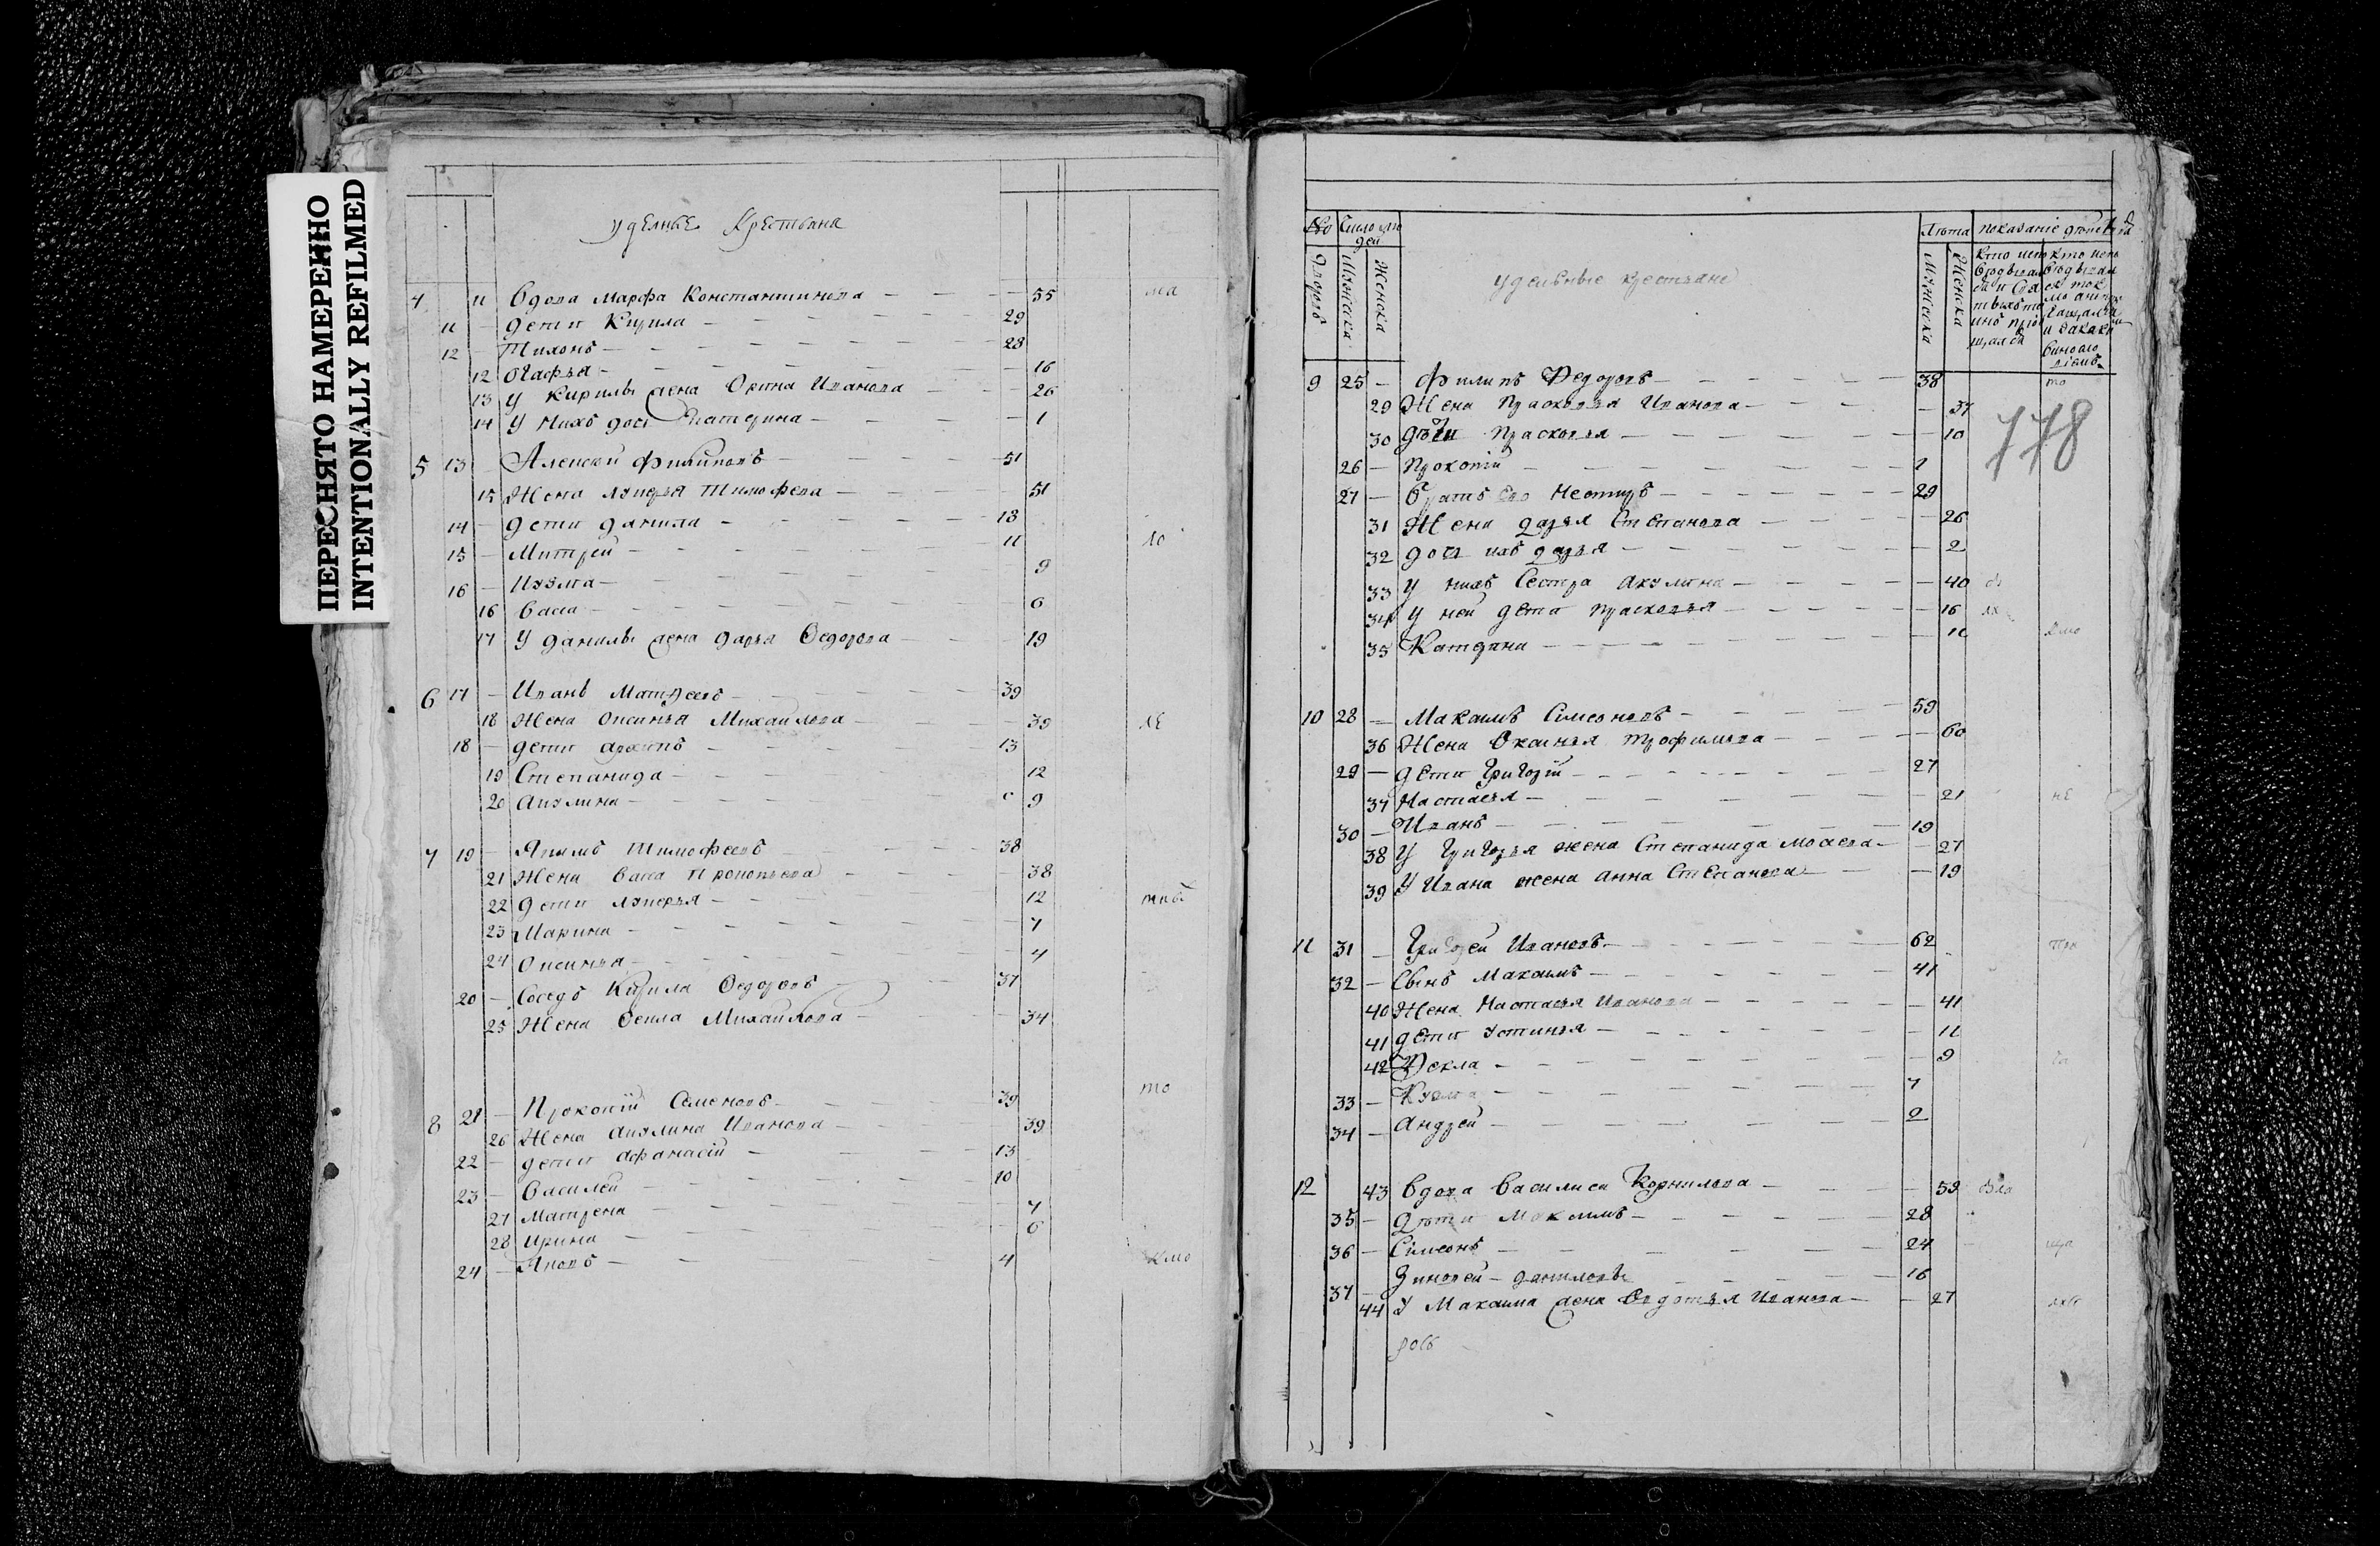 ПЕРЕСНЯТО НАМЕРЕННО
INTENTIONALLY REFILMED
уделные Крестьяна
4 11 Вдова Марфа Константинова 55
11 дети Кирила 29
12 Тихонъ 23
12 Огафья 16
13 У Кирилы жена Орина Иванова 26
14 У нихъ дочь Екатерина 1
5 13 Алексей Филиповъ 51
15 Жена Лукерья Тимофева 51
14 дети данила 18
15 Митрей 11
16 Кузма 9
16 Васа 6
17 У данилы жена дарья Федорова 19
6 17 Иванъ Матвеевъ 39
18 Жена Оксинья Михаилова 39
18 дети архипъ 13
19 Степанида 12
20 Акулина 9
7 19 Якимъ Тимофеевъ 38
21 Жена Васа Прокопьева 38
22 дети Лукерья 12
23 Марина 7
24 Оксинья 4
20 Соседъ Кирила Федоровъ 37
25 Жена Фекла Михаилова 34
8 21 Прокопiй Семеновъ 39
26 Жена Акулина Иванова 39
22 дети Афанасiй 13
23 Василей 10
27 Матрена 7
28 Ирина 6
24 Яковъ 4
Число людей
Лета показание
дворовъ Мужеска Женска
Мужеска Женска
удельные крестьяне
778
9 25 Филипъ Федоровъ 38
29 Жена Прасковья Иванова 37
30 дѣти Прасковья 10
26 Прокопiй 1
27 братъ Его Нестиръ 29
31 Жена дарья Степанова 26
32 дочь ихъ дарья 2
33 У нихъ Сестра акулина 40
34 У ней дети прасковья 16
35 11
10 28 Максимъ Симеоновъ 59
36 Жена Оксинья трофимова 60
29 дети Григорiй 27
37 Настасья 21
30 Иванъ 19
38 У Григорья жена Степанида мосева 27
39 У Ивана жена анна Степанова 19
11 31 Григорей Ивановъ 62
32 Сынъ Максимъ 41
40 Жена Настасья Иванова 41
41 дети Устинья 11
42 Фекла 9
33 Кузма 7
34 Андрей 2
12 43 Вдова Василиса Корнилова 59
35 дѣти Максимъ 28
36 Симеонъ 24
37 Зиновей даниловы 16
44 У Максима жена Овдотья Иванова 27